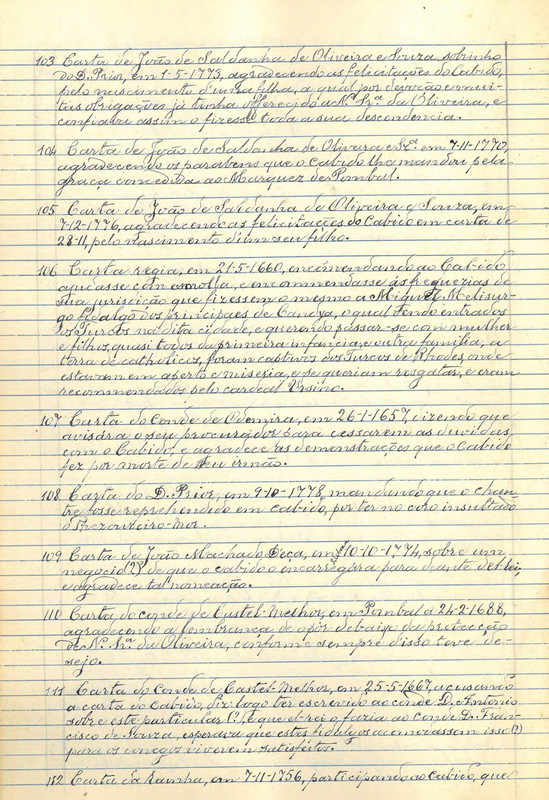 103 Carta de João de Saldanha de Oliveira e Souza, sobrinho
do D. Prior, em 1-5-1773, agradecendo as felicitações do Cabido,
pelo nascimento d'uma filha, a qual por devoção e mui-
tas obrigações já tinha offerecido a Nª Srª da Oliveira, e
confiava assim o fizesse toda a sua descendencia.
104 Carta de João de Saldanha de Oliveira e Sza em 7-11-1770,
agradecendo os parabens que o Cabido lhe mandou pela
graça concedida ao Marquez de Pombal.
105 Carta de João de Saldanha de Oliveira e Souza, em
7-12-1776, agradecendo as felicitações do Cabido em carta de
28-11, pelo nascimento d'um seu filho.
106 Carta regia, em 21-5-1660, encomendando ao Cabido
ajudasse com esmolla, e encommendasse ás freguezias de
sua jurisdição que fizessem o mesmo a Miguel Melisur-
go fidalgo dos principaes de Candya, o qual tendo entrados
os Turcos na dita cidade, e querendo passar-se com mulher
e filhos, quasi todos da primeira infancia, e outra familia, a
terra de catholicos, foram cativos dos Turcos de Rhodes onde
estavam em aperto e miseria, e se queriam resgatar, e eram
recommendados pelo cardeal Ursino.
107 Carta do Conde de Odemira, em 26-1-1657, dizendo que
avisára o seu procurador para cessarem as duvidas
com o Cabido, e agradece as demonstrações que o Cabido
fez por morte de seu irmão.
108 Carta do D. Prior, em 9-10-1778, mandando que o chan-
tre fosse reprehendido em cabido, por ter no coro insultado
o Thezoureiro-mor.
109 Carta de João Machado Deça, em 10-10-1774, sobre um
negocio (?) de que o cabido o encarregára para deante del-rei,
e agradece tal nomeação.
110 Carta do conde de Castel-Melhor, em Pombal a 24-2-1688,
agradecendo a lembrança de o pôr debaixo da protecção
de Nª Srª da Oliveira, conforme sempre d'isso teve de-
sejo.
111 Carta do Conde de Castel-Melhor, em 25-5-1667, accusando
a carta do Cabido, diz logo ter escrevido ao conde D. Antonio
sobre este particular (?), e que el-rei o faria ao conde D. Fran-
cisco de Souza, esperava que estes fidalgos accomodassem isso (?)
para os conegos viverem satisfeitos.
112 Carta da Rainha, em 7-11-1756, participando ao Cabido, que